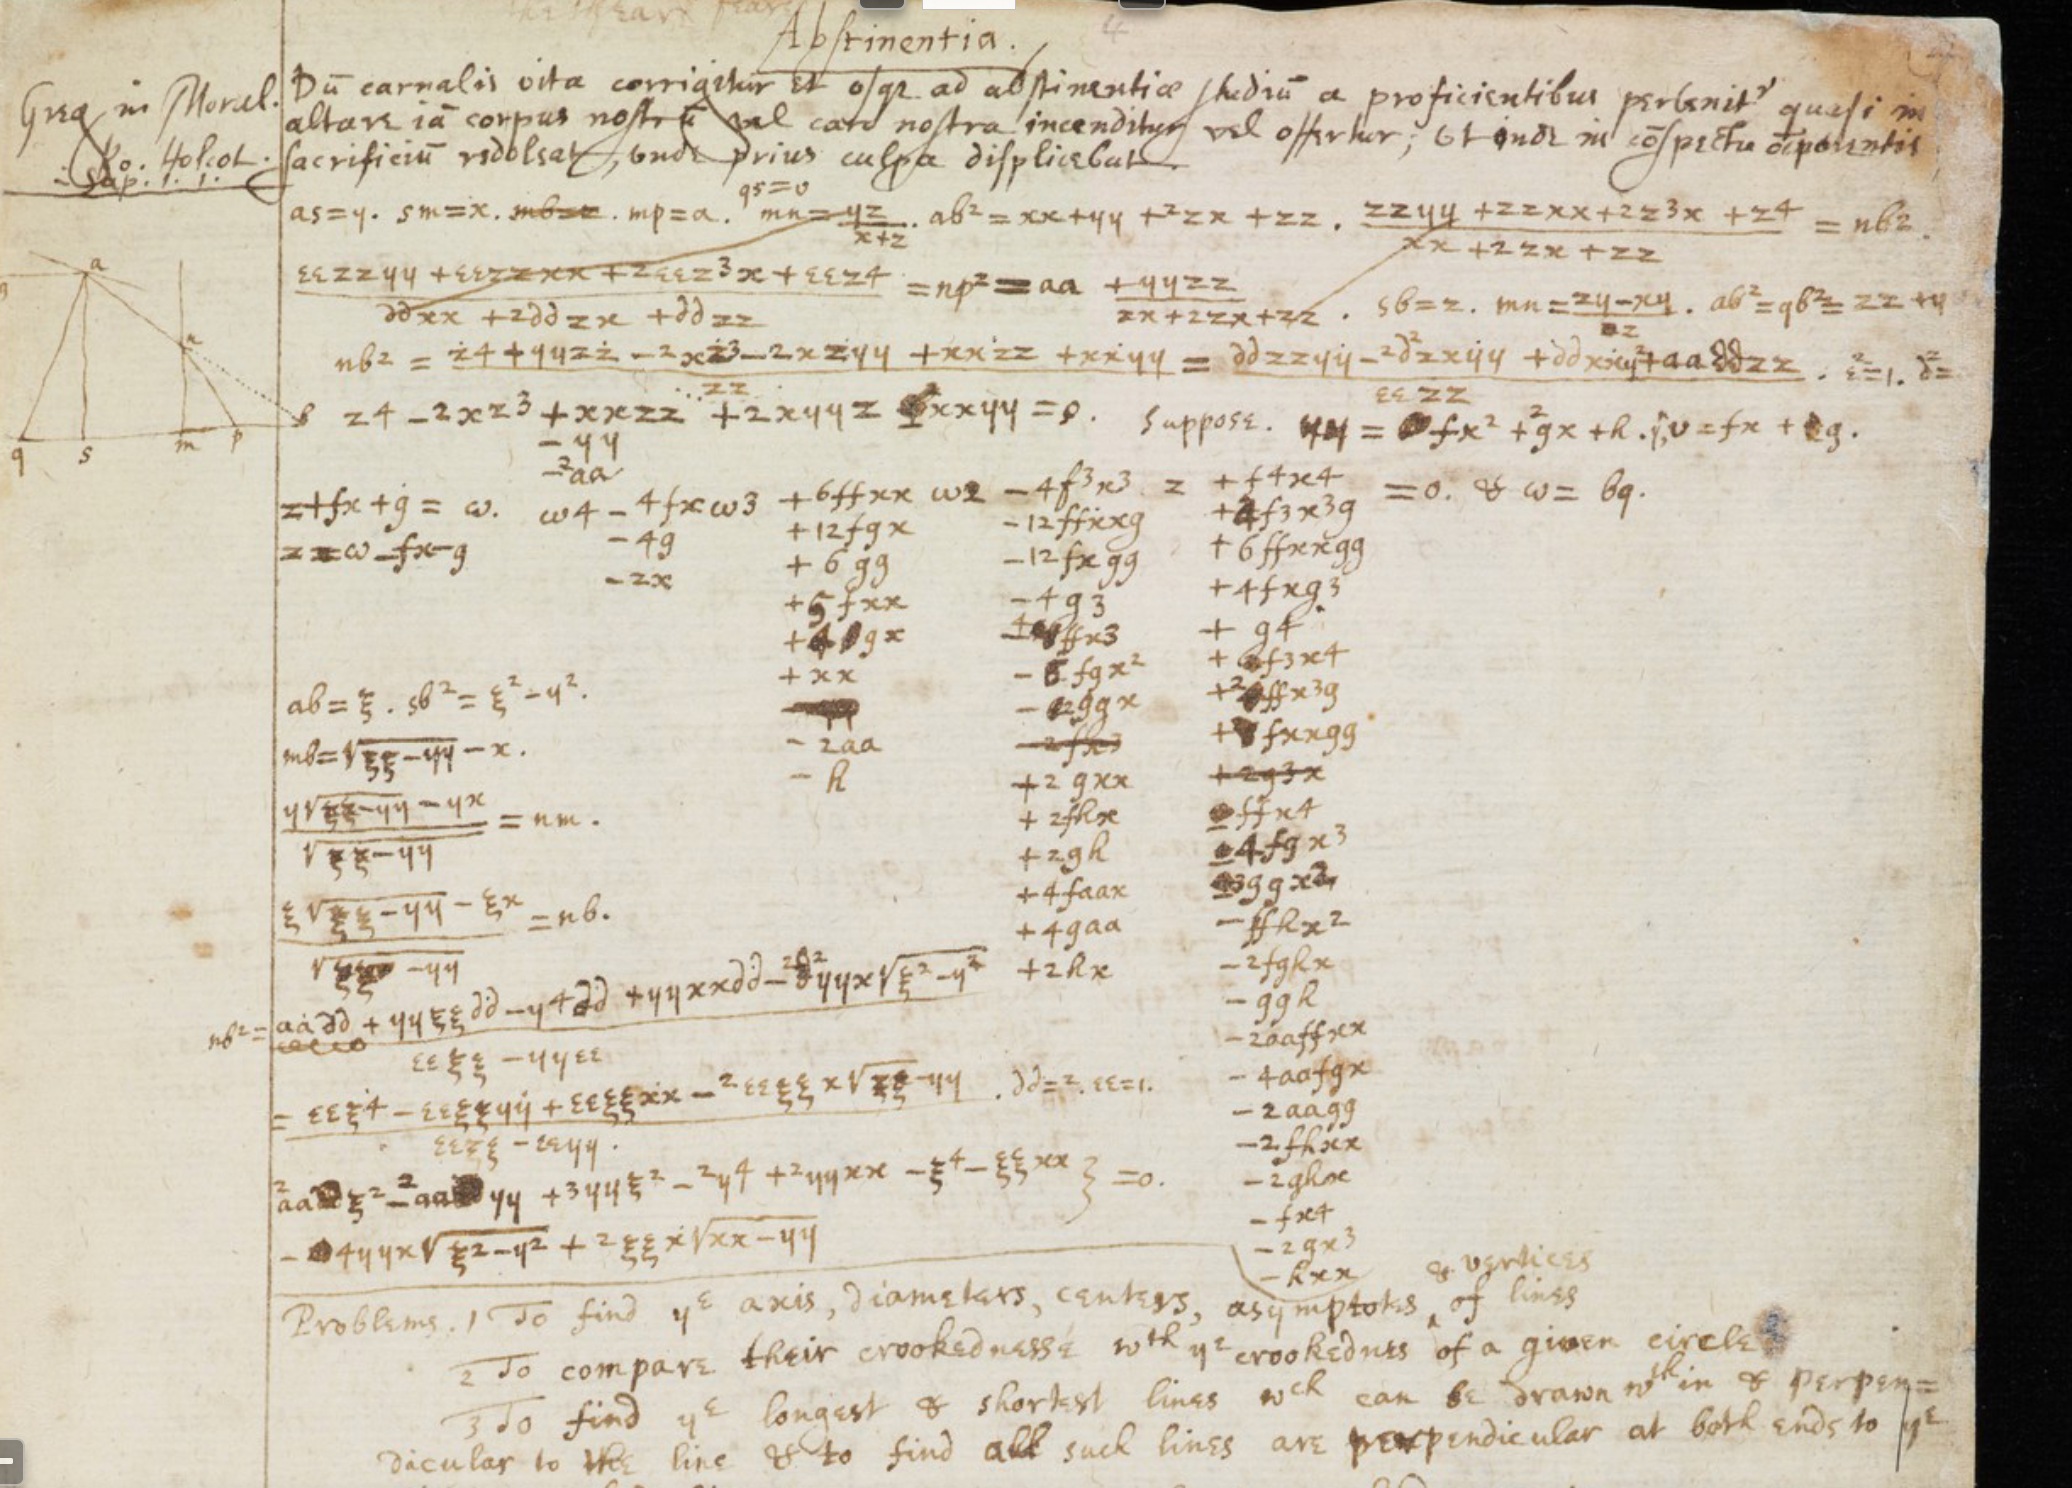 Abstinentia.
Greg in Moral.
Ro. Holcot.
Sap. 1. 1.
Dū carnalis vita corrigitur et usqe ad abstinentiæ studiū a proficientibus pervenitr quasi in
altare iā corpus nostrū vel caro nostra incenditur vel offertur; Et inde in cōspectu
sacrificiū redoleat, unde prius culpa displicebat.
qs=v
as=y. sm=x. mb=z. mp=a. mn=yz/x+z. ab²=xx+yy+2zx+zz. zzyy+zzxx+2z³x+z4/xx+2zx+zz =nb².
εεzzyy+εεzzxx+2εεz³x+εεz4/ddxx+2ddzx+ddzz =np²=aa +yyzz/xx+2zx+zz. sb=z. mn=zy-xy/z. ab²=qb²=zz+y
nb² = z4+yyzz-2xz3-2xzyy+xxzz+xxyy/zz = ddzzyy-2d²zxyy+ddxxyy+aaddzz/εεzz. ε²=1. d²=
z4-2xz3+xxzz+2xyyz xxyy=0. Suppose. yy= fx²+2gx+h. v=fx+g.
-yy
-2aa
a
n
q s m p
z+fx+g=ω. ω4-4fxω3 +6ffxx ω2 -4f3x3 z +f4x4 =0. & ω=bq.
z=ω-fx-g -4g +12fgx -12ffxxg +4f3x3g
-2x +6gg -12fxgg +6ffxxgg
+5fxx -4g3 +4fxg3
+4gx -4ffx3 +g4
+xx -6fgx² +f3x4
-2aa -2ggx +2ffx3g
-h -2fx3 +fxxgg
+2gxx +2g3x
+2fhx ffx4
+2gh -4fgx3
+4faax 3ggx2
+4gaa -ffhx2
+2hx -2fghx
-ggh
-2aaffxx
-4aafgx
-2aagg
-2fhxx
-2ghx
-fx4
-2gx3
-hxx
ab=ξ. sb²=ξ²-y².
mb=√ξξ-yy -x.
y√ξξ-yy -yx/√ξξ-yy =nm.
ξ√ξξ-yy -ξx/√ξξ-yy =nb.
nb²= aadd+yyξξdd-y4dd+yyxxdd-2d²yyx√ξ²-y²/εεξξ-yyεε
= εεξ4-εεξξyy+εεξξxx-2εεξξx√ξξ-yy/εεξξ-εεyy. dd=2. εε=1.
2aaξ²-2aayy+3yyξ²-2y4+2yyxx-ξ4-ξξxx } =0.
-4yyx√ξ2-y2 +2ξξx√xx-yy
Problems. 1 To find yᵉ axis, diameters, centers, asymptotes & vertices of lines
2 To compare their crookednesse wth yᵉ crookednes of a given circle
3 To find yᵉ longest & shortest lines wch can be drawn wthin & perpen=
dicular to the line & to find all such lines are perpendicular at both ends to yᵉ